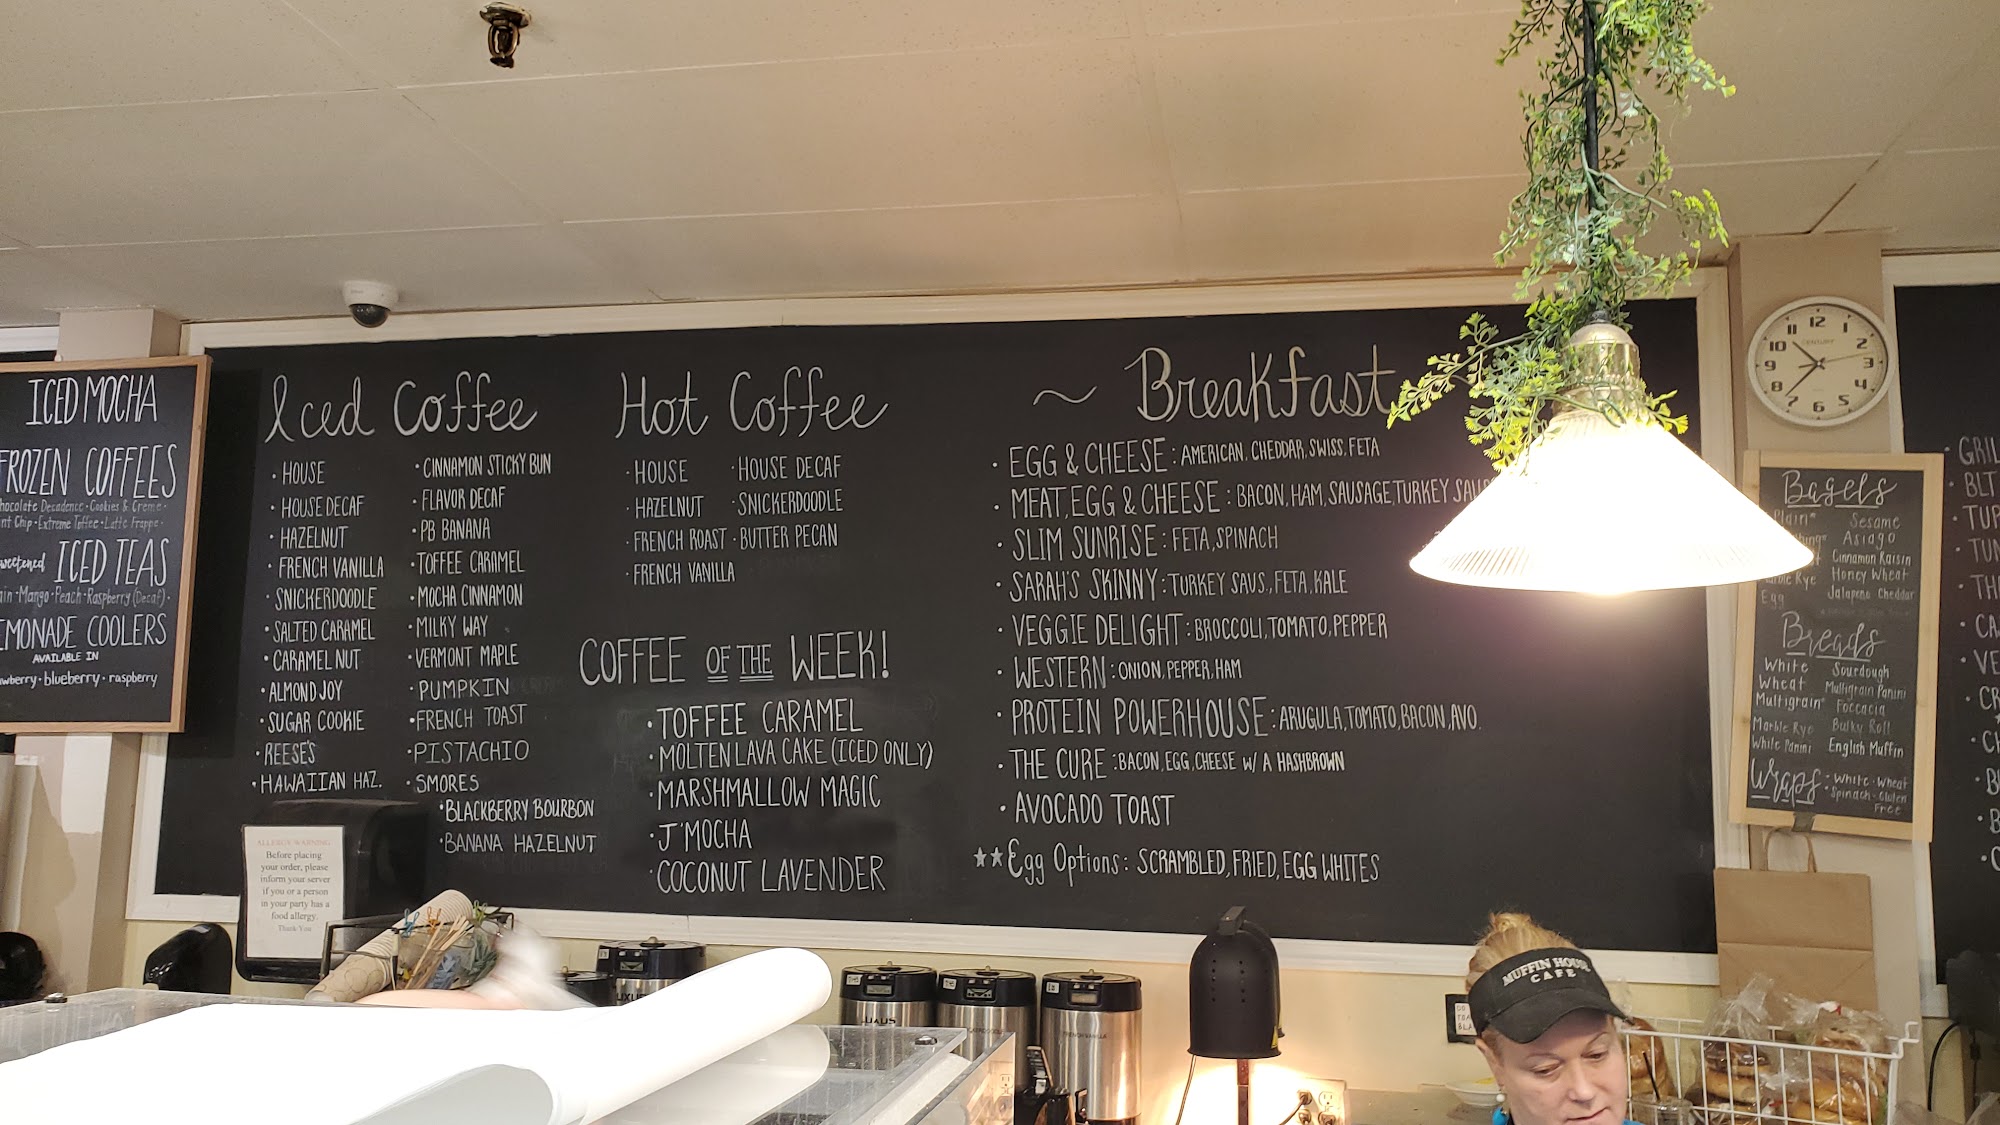 ICED MOCHA
FROZEN COFFEES
Chocolate Decadence · Cookies & Creme ·
Chip · Extreme Toffee · Latte Frappe ·
ICED TEAS
· Mango · Peach · Raspberry (Decaf) ·
LEMONADE COOLERS
AVAILABLE IN
· blueberry · raspberry
Iced Coffee
· HOUSE
· HOUSE DECAF
· HAZELNUT
· FRENCH VANILLA
· SNICKERDOODLE
· SALTED CARAMEL
· CARAMEL NUT
· ALMOND JOY
· SUGAR COOKIE
· REESE'S
· HAWAIIAN HAZ.
· CINNAMON STICKY BUN
· FLAVOR DECAF
· PB BANANA
· TOFFEE CARAMEL
· MOCHA CINNAMON
· MILKY WAY
· VERMONT MAPLE
· PUMPKIN
· FRENCH TOAST
· PISTACHIO
· SMORES
· BLACKBERRY BOURBON
· BANANA HAZELNUT
Hot Coffee
· HOUSE
· HAZELNUT
· FRENCH ROAST
· FRENCH VANILLA
· HOUSE DECAF
· SNICKERDOODLE
· BUTTER PECAN
COFFEE OF THE WEEK!
· TOFFEE CARAMEL
· MOLTEN LAVA CAKE (ICED ONLY)
· MARSHMALLOW MAGIC
· J'MOCHA
· COCONUT LAVENDER
~ Breakfast
· EGG & CHEESE : AMERICAN, CHEDDAR, SWISS, FETA
· MEAT, EGG & CHEESE : BACON, HAM, SAUSAGE, TURKEY
· SLIM SUNRISE : FETA, SPINACH
· SARAH'S SKINNY : TURKEY SAUS., FETA, KALE
· VEGGIE DELIGHT : BROCCOLI, TOMATO, PEPPER
· WESTERN : ONION, PEPPER, HAM
· PROTEIN POWERHOUSE : ARUGULA, TOMATO, BACON, AVO.
· THE CURE : BACON, EGG, CHEESE W/ A HASHBROWN
· AVOCADO TOAST
★★ Egg Options : SCRAMBLED, FRIED, EGG WHITES
CENTURY
12
1
2
3
4
5
6
7
8
9
10
11
Bagels
Plain*
Rye
Egg
Sesame
Asiago
Cinnamon Raisin
Honey Wheat
Jalapeno Cheddar
Breads
White
Wheat
Multigrain*
Marble Rye
White Panini
Sourdough
Multigrain Panini
Foccacia
Bulky Roll
English Muffin
Wraps
· White · Wheat
· Spinach · Gluten
Free
· BLT
ALLERGY WARNING
Before placing
your order, please
inform your server
if you or a person
in your party has a
food allergy.
Thank You
FRENCH VANILLA
MUFFIN HOUSE
CAFE